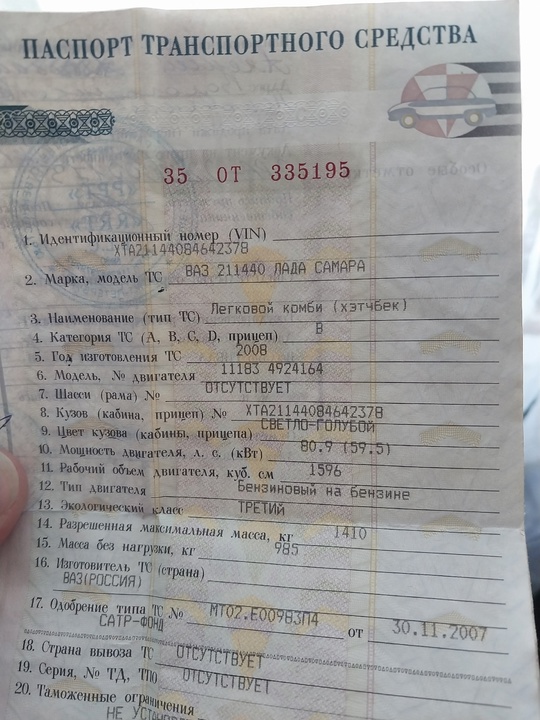 ПАСПОРТ ТРАНСПОРТНОГО СРЕДСТВА
35 ОТ 335195
1. Идентификационный номер (VIN)
ХТА21144084642378
2. Марка, модель ТС ВАЗ 211440 ЛАДА САМАРА
3. Наименование (тип ТС) Легковой комби (хэтчбек)
4. Категория ТС (А, В, С, D, прицеп) В
5. Год изготовления ТС 2008
6. Модель, № двигателя 11183 4924164
7. Шасси (рама) № ОТСУТСТВУЕТ
8. Кузов (кабина, прицеп) № ХТА21144084642378
9. Цвет кузова (кабины, прицепа) СВЕТЛО-ГОЛУБОЙ
10. Мощность двигателя, л. с. (кВт) 80.9 (59.5)
11. Рабочий объем двигателя, куб. см 1596
12. Тип двигателя Бензиновый на бензине
13. Экологический класс ТРЕТИЙ
14. Разрешенная максимальная масса, кг 1410
15. Масса без нагрузки, кг 985
16. Изготовитель ТС (страна)
ВАЗ(РОССИЯ)
17. Одобрение типа ТС № МТ02.Е00983П4
САТР-ФОНД от 30.11.2007
18. Страна вывоза ТС ОТСУТСТВУЕТ
19. Серия, № ТД, ТПО ОТСУТСТВУЕТ
20. Таможенные ограничения
НЕ